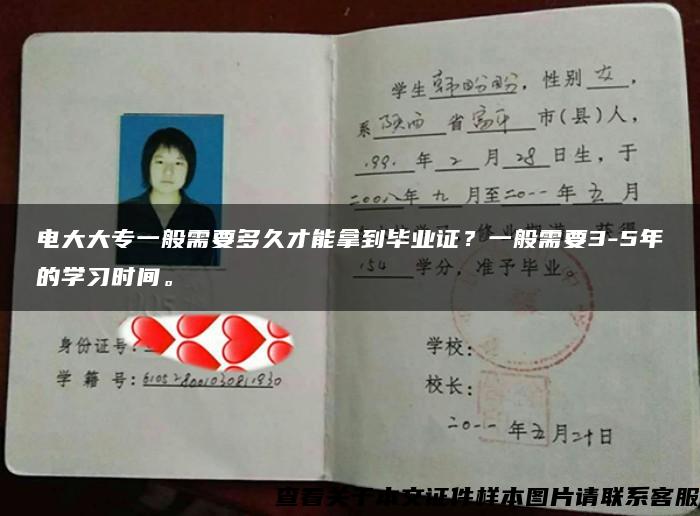 学生韩盼盼，性别女，
系陕西省富平市(县)人，
1991年2月28日生，于
二00八年九月至二0一一年五月
修业期满，获得
154学分，准予毕业。
电大大专一般需要多久才能拿到毕业证？一般需要3-5年
的学习时间。
身份证号：
学籍号：610528001030811930
学校：
校长：
二0一一年五月二十日
查看关于本文证件样本图片请联系客服